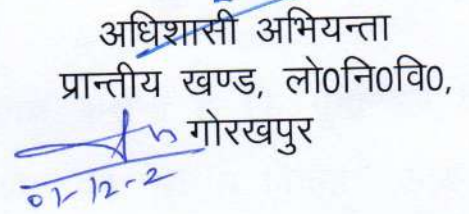 अधिशासी अभियन्ता
प्रान्तीय खण्ड, लो0नि0वि0,
गोरखपुर
01-12-2